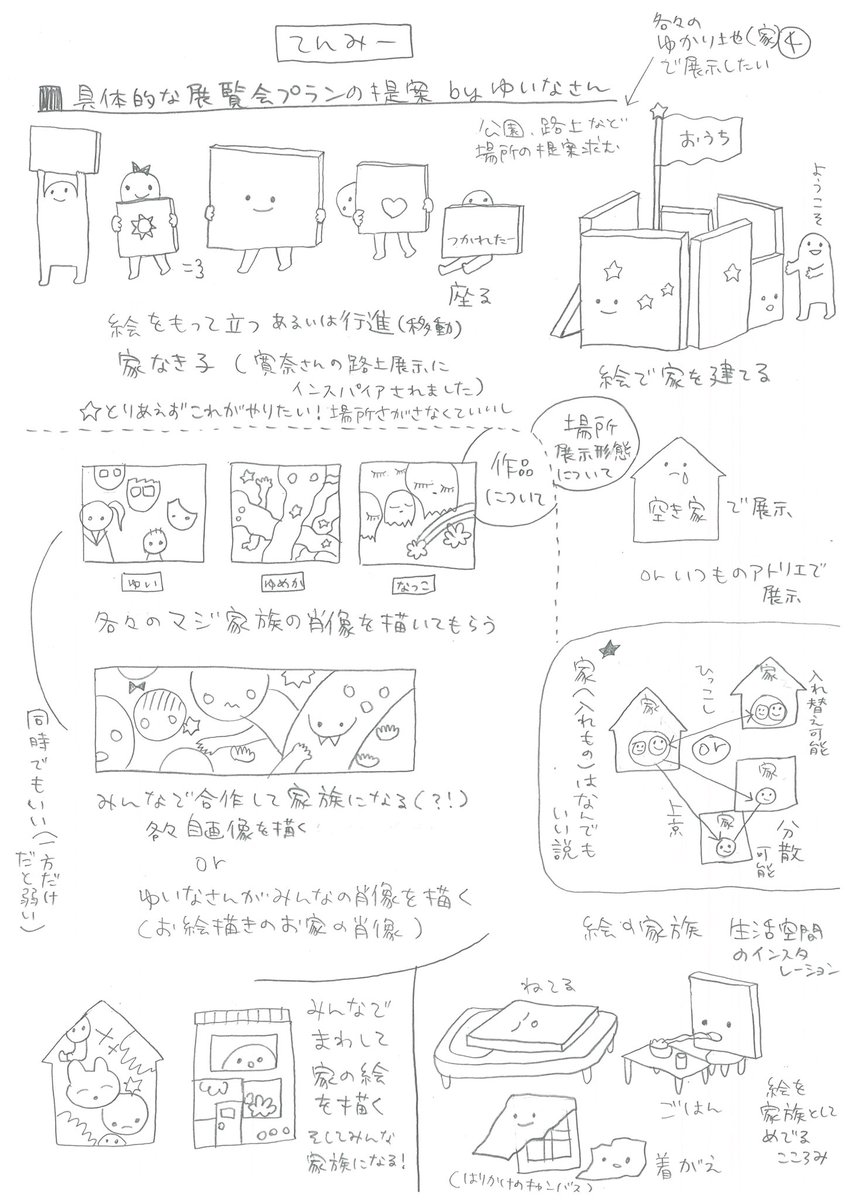 てんみー
各々の
ゆかり土地(家)4
で展示したい
具体的な展覧会プランの提案 by ゆいなさん
公園、路上など
場所の提案求む
おうち
ようこそ
つかれたー
座る
絵をもって立つ あるいは行進(移動)
家なき子 (寛奈さんの路上展示に
インスパイアされました)
☆とりあえずこれがやりたい!場所さがさなくていいし
絵で家を建てる
作品
について
場所
展示形態
について
ゆい
ゆめか
なつこ
各々のマジ家族の肖像を描いてもらう
空き家
で展示
or いつものアトリエで
展示
みんなで合作して家族になる(?!)
各々自画像を描く
or
ゆいなさんがみんなの肖像を描く
(お絵描きのお家の肖像)
同時でもいい(一方だけ
だと弱い)
★
家(入れもの)はなんでも
いい説
家
ひっこし
家
入れ替え可能
or
上京
家
家
分散
可能
みんなで
まわして
家の絵
を描く
そしてみんな
家族になる!
絵の家族 生活空間
のインスタ
レーション
ねてる
ごはん
着がえ
(はりかけのキャンバス)
絵を
家族として
めでる
こころみ